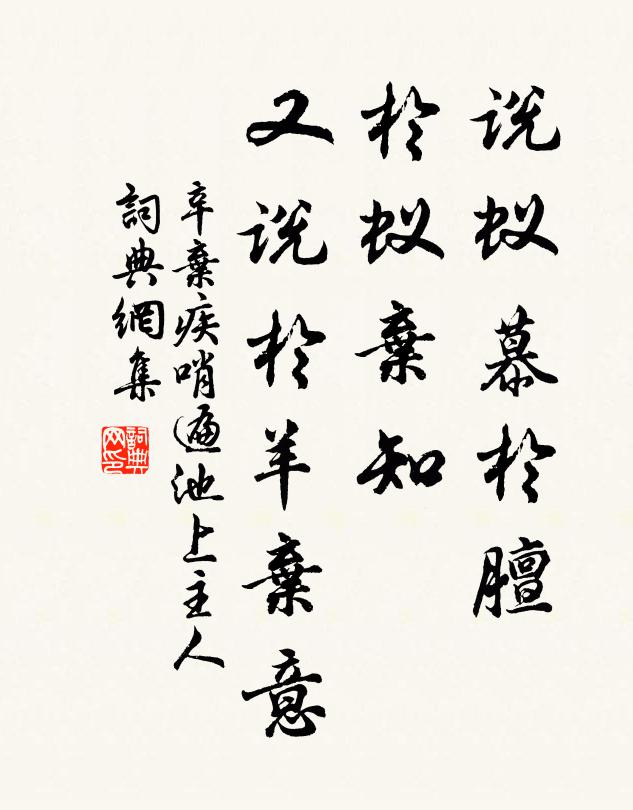 说蚁慕於膻
於蚁棄知
又说於羊棄意
辛棄疾哨遍池上主人
詞典網集
詞典網印